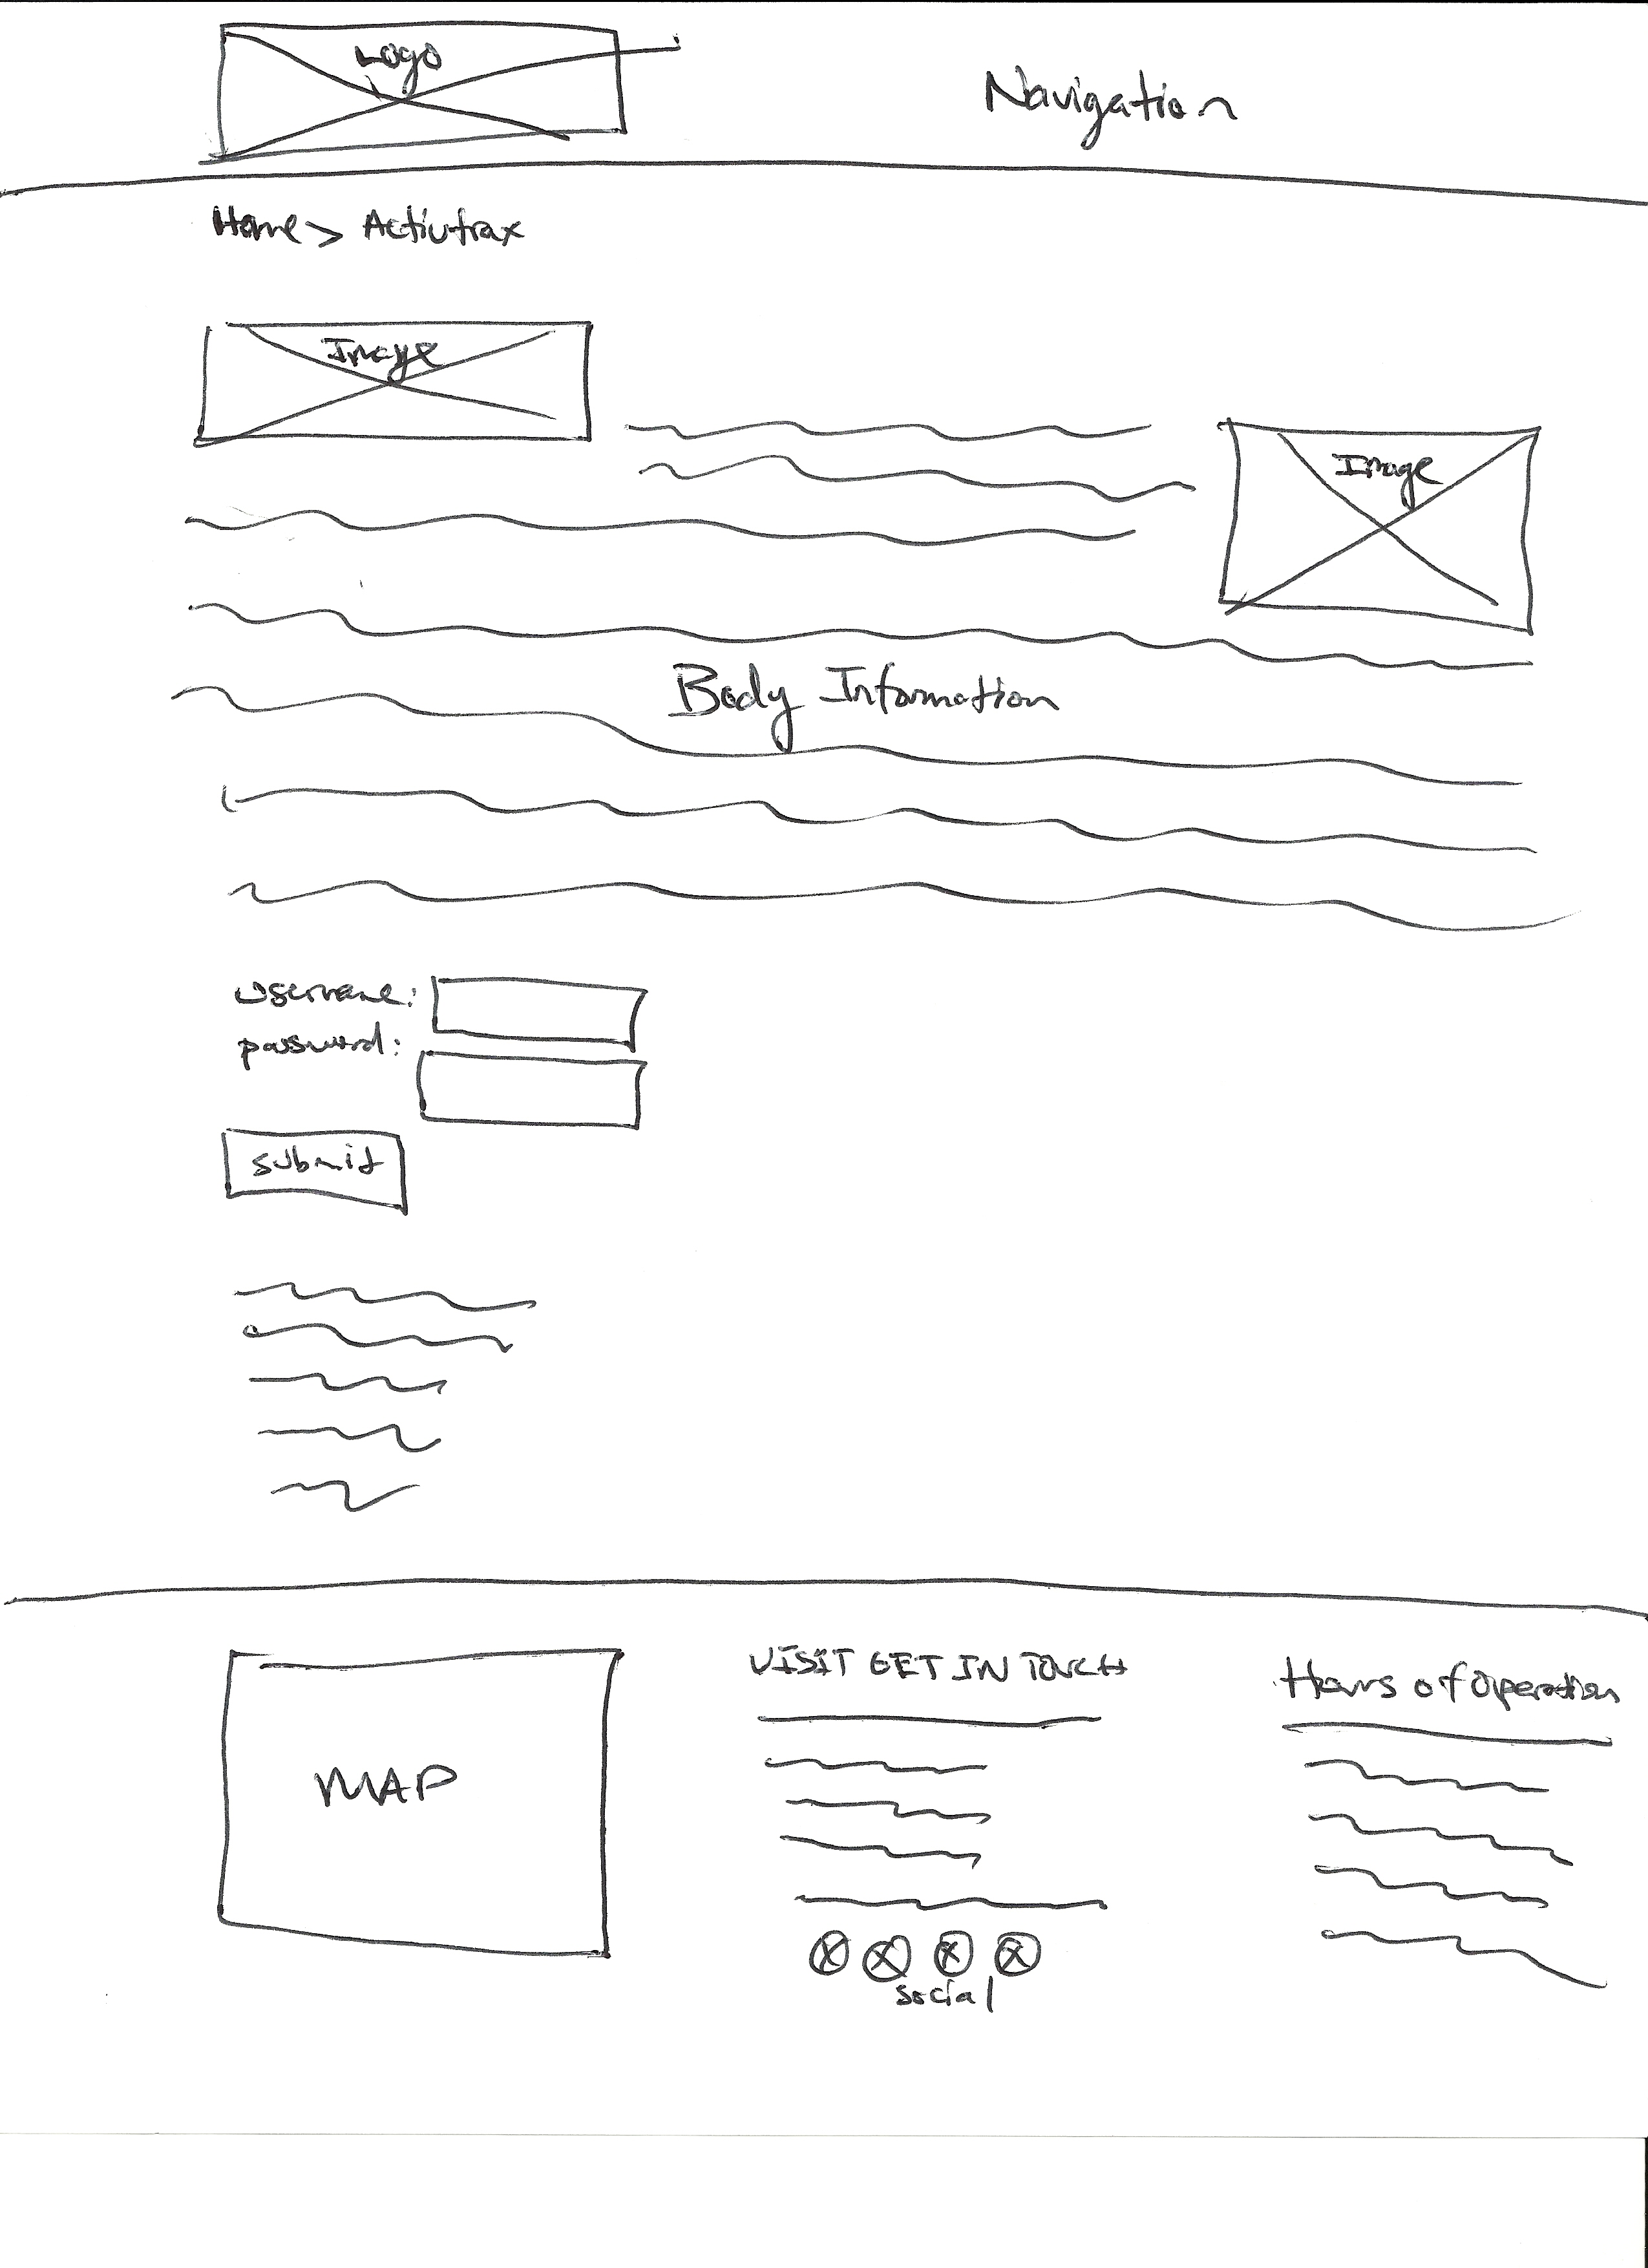 Logo
Navigation
Home > Activtrax
Image
Image
Body Information
username:
password:
submit
VISIT GET IN TOUCH
Hours of Operation
MAP
social